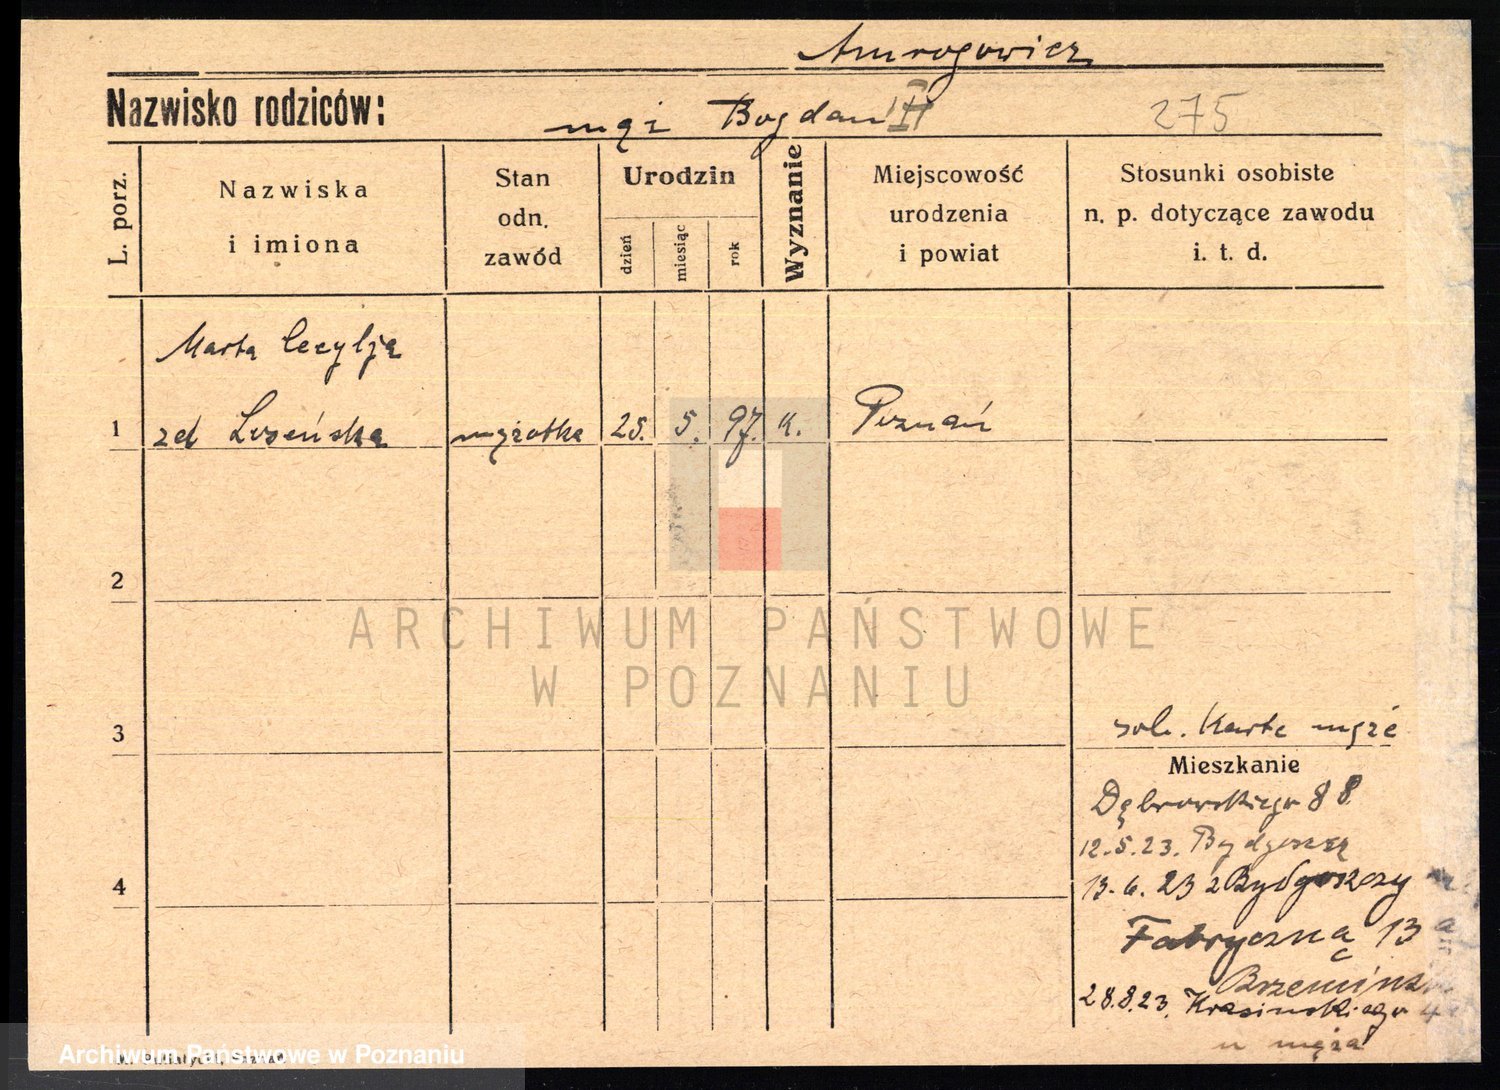 Amrogowicz
Nazwisko rodziców:
mąż Bogdan 275
L. porz.
Nazwiska
i imiona
Stan
odn.
zawód
Urodzin
dzień
miesiąc
rok
Wyznanie
Miejscowość
urodzenia
i powiat
Stosunki osobiste
n. p. dotyczące zawodu
i. t. d.
Marta Cecylja
1 zd mężatka 25. 5. 97. k. Poznań
2
ARCHIWUM PAŃSTWOWE
W POZNANIU
3
Mieszkanie
Dąbrowskiego 88
12.5.23. Bydgoszcz
4
13.6.23 z Bydgoszczy
Fabryczną 13
28.8.23. Krasińskiego 4
u męża
Archiwum Państwowe w Poznaniu